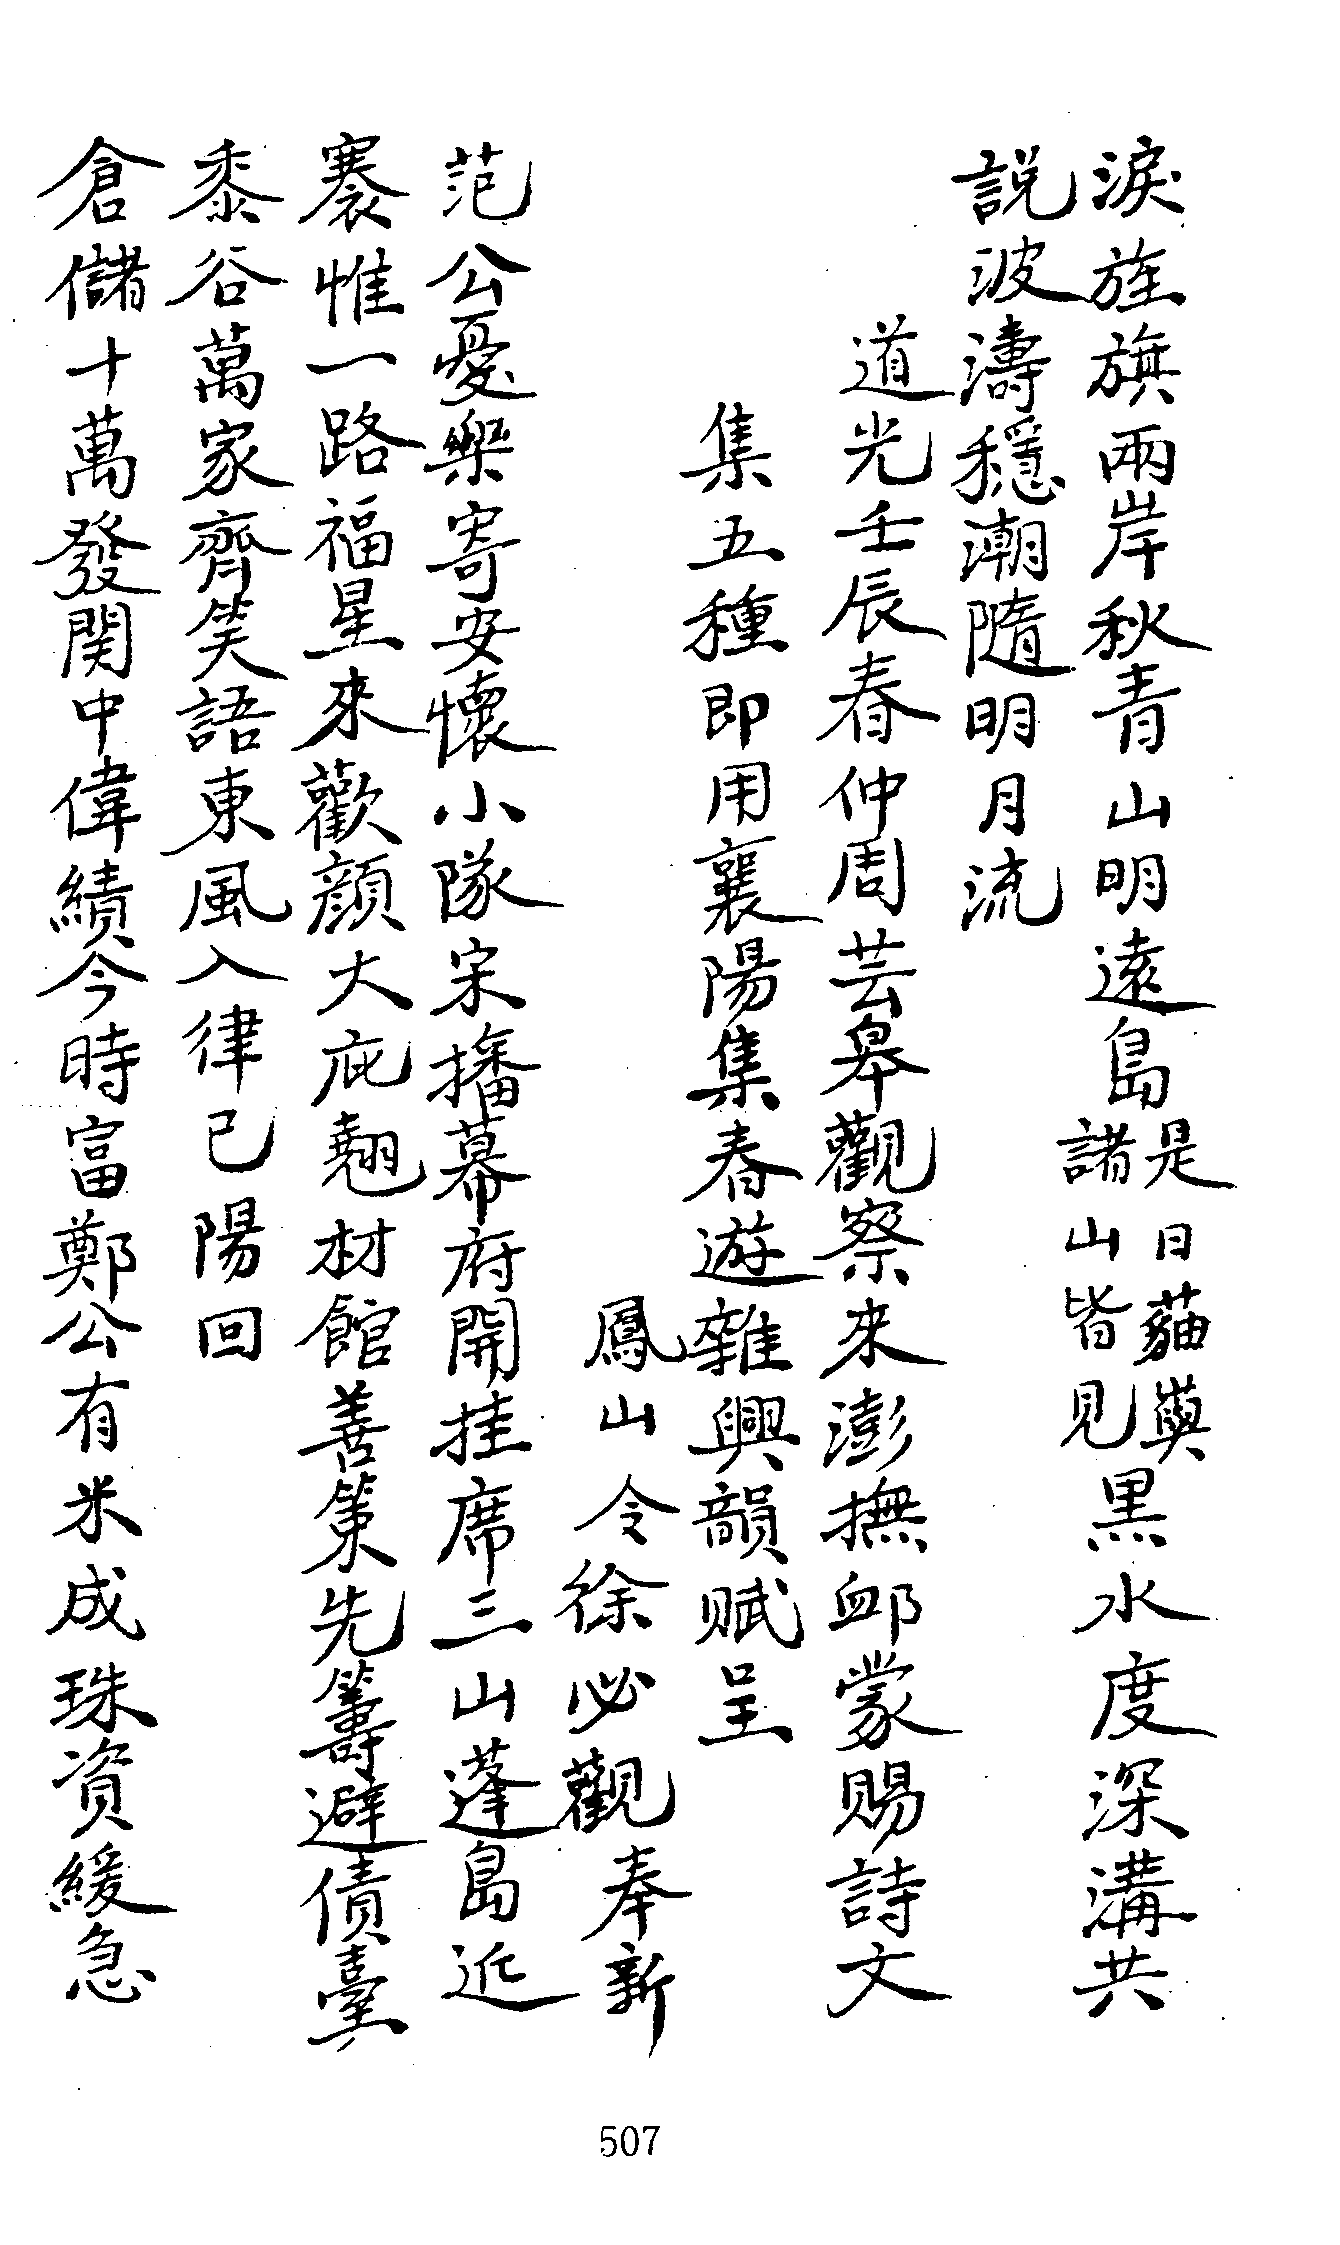 淚旌旗兩岸秋青山明遠島是日貓嶼諸山皆見黑水度深溝共
説波濤穩潮隨明月流
道光壬辰春仲周芸皋觀察來澎撫卹蒙賜詩文
集五種即用襄陽集春遊雜興韻賦呈
鳳山令徐必觀奉新
范公憂樂寄安懷小隊宋播幕府開挂席三山蓬島近
褰惟一路福星來歡顔大庇翹材館善策先籌避債臺
黍谷萬家齊笑語東風入律已陽回
倉儲十萬發関中偉績今時富鄭公有米成珠資緩急
507